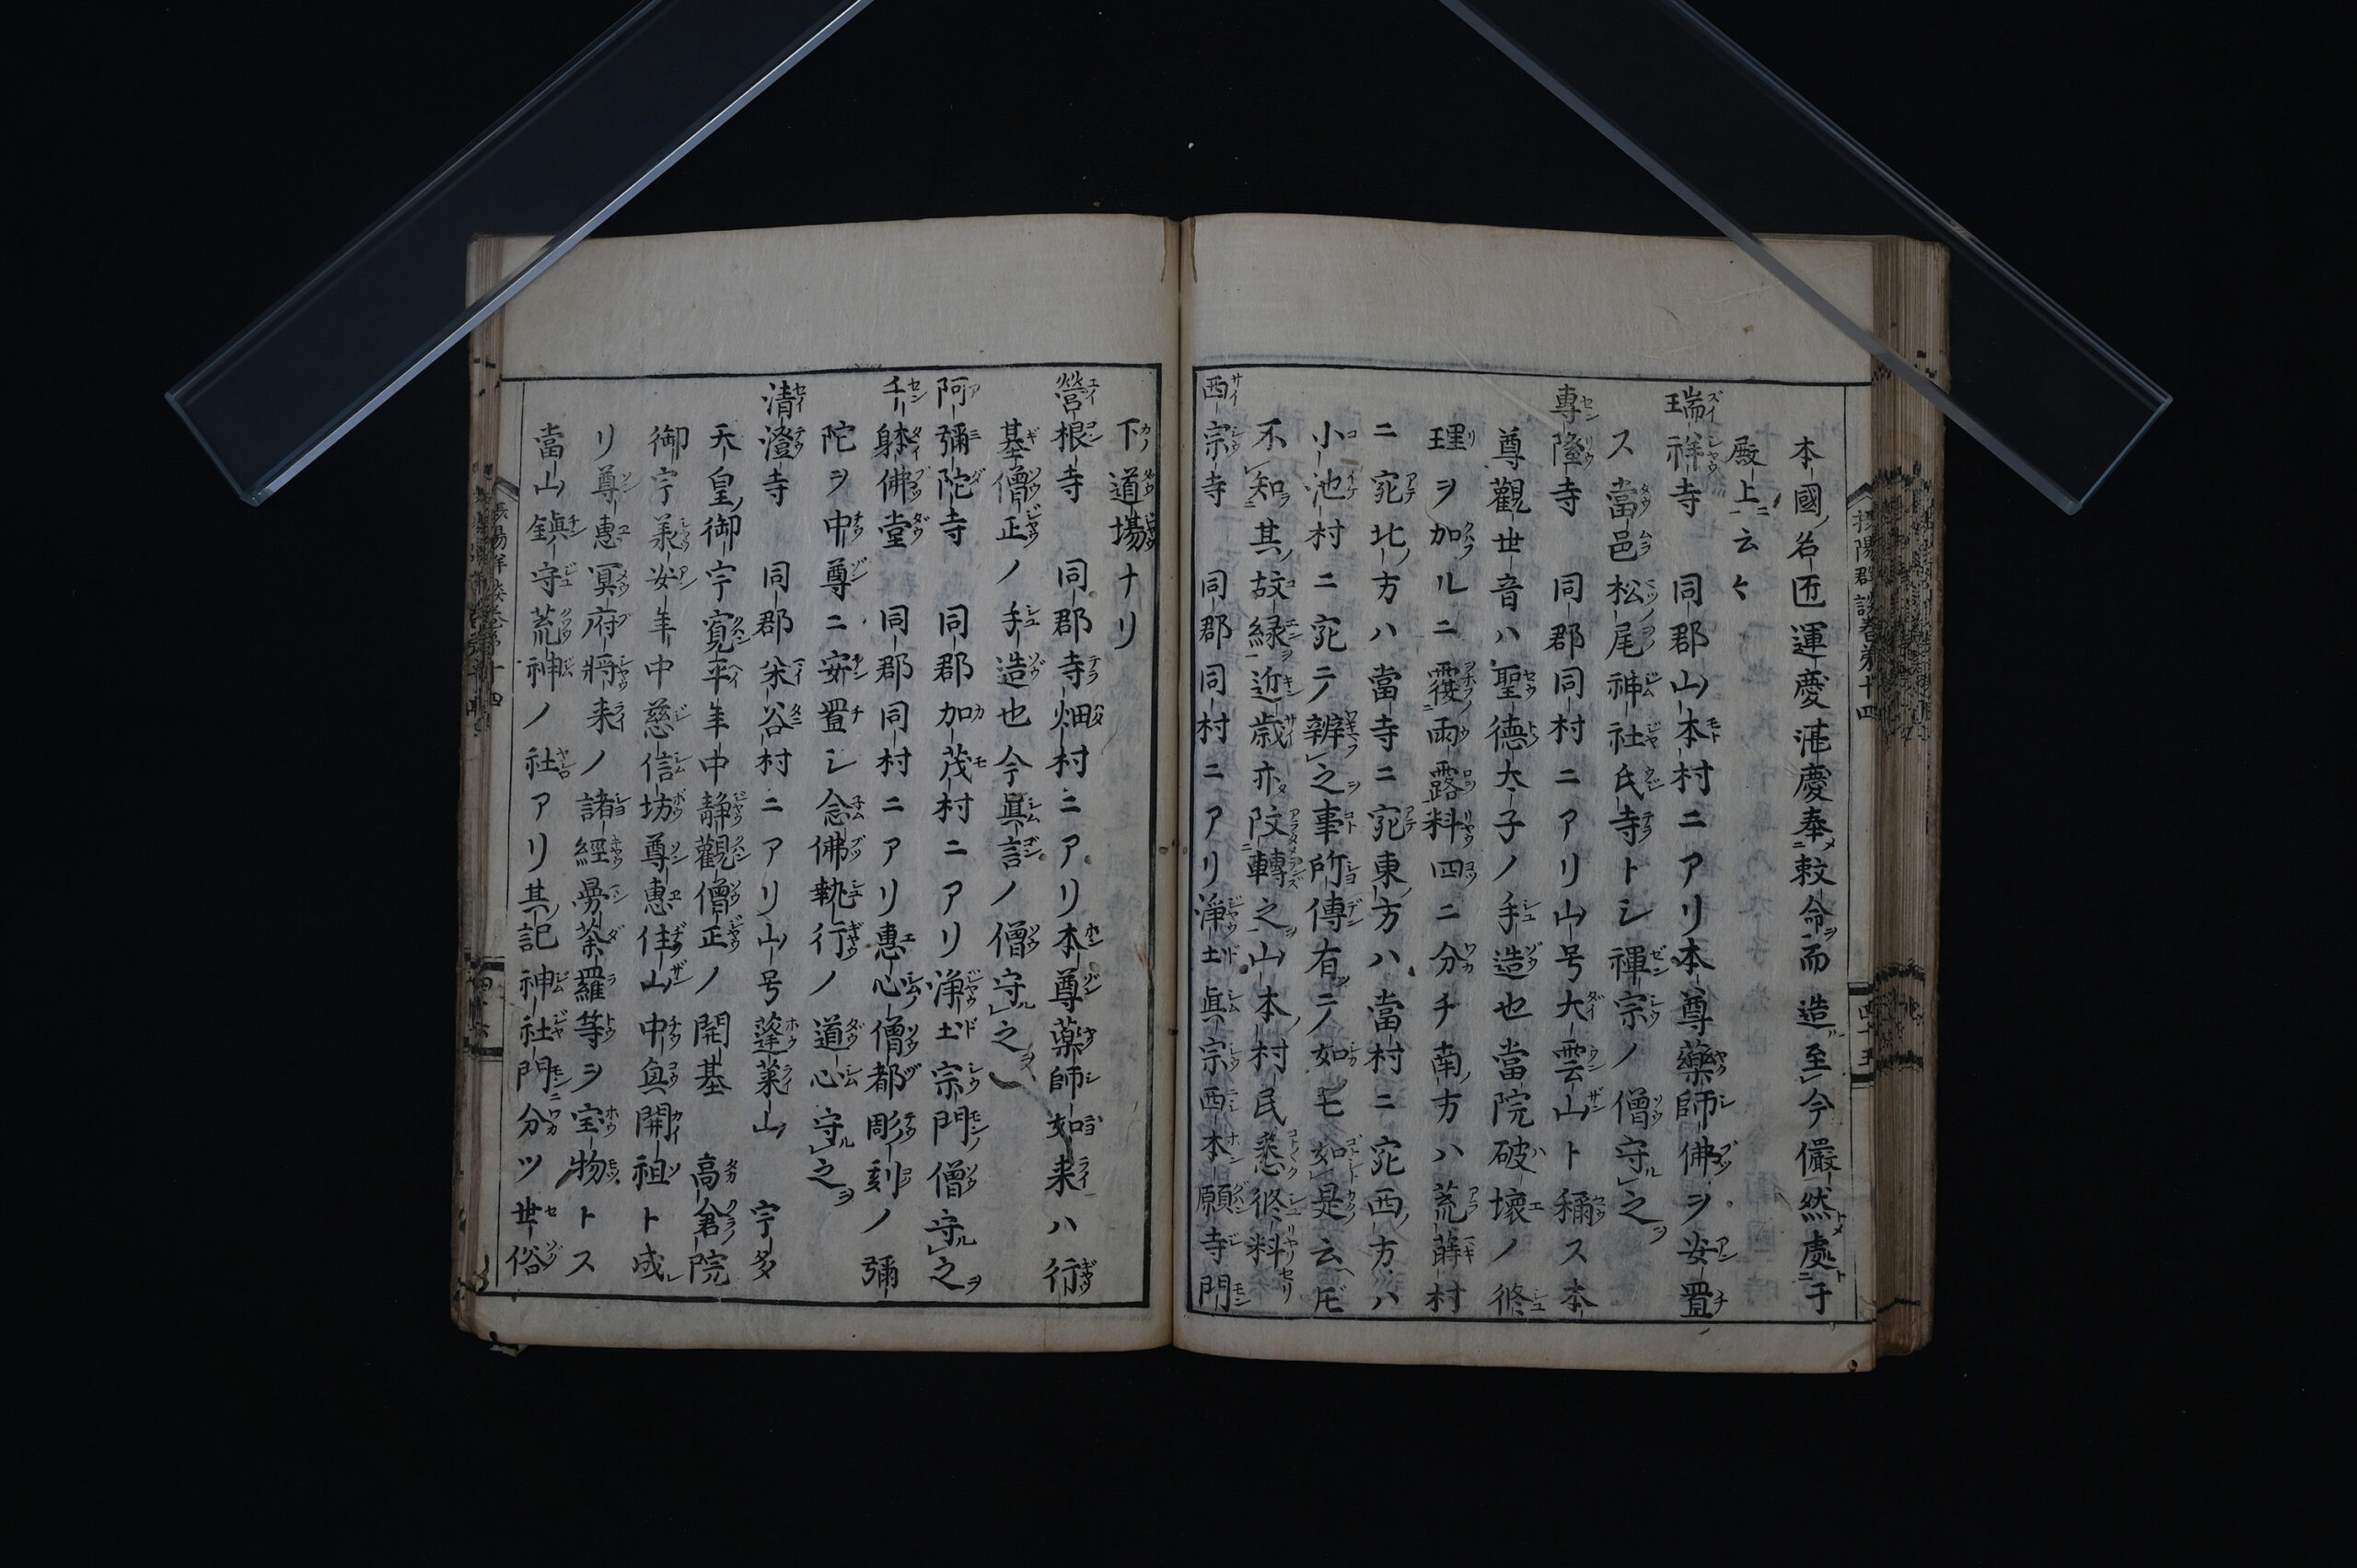 本國名匠運慶湛慶奉敕命而造至今儼然處于
殿上云々
瑞祥寺 同郡山本村ニアリ本尊藥師佛ヲ安置
ス當邑松尾神社氏寺トシ禪宗ノ僧守之
專隆寺 同郡同村ニアリ山号大雲山ト稱ス本
尊觀世音ハ聖德太子ノ手造也當院破壊ノ修
理ヲ加ルニ覆雨露料四ニ分チ南方ハ荒蒔村
ニ宛北方ハ當寺ニ宛東方ハ當村ニ宛西方ハ
小池村ニ宛テ辨之事所傳有テ如此如是云𪜈
不知其故緣近歳亦改轉之山本村民悉修料
西宗寺 同郡同村ニアリ淨土眞宗西本願寺門
攝陽群談卷第十四
四十五
下道場ナリ
營根寺 同郡寺畑村ニアリ本尊藥師如来ハ行
基僧正ノ手造也今眞言ノ僧守之
阿彌陀寺 同郡加茂村ニアリ淨土宗門僧守之
千躰佛堂 同郡同村ニアリ惠心僧都彫刻ノ彌
陀ヲ中尊ニ安置シ念佛執行ノ道心守之
清澄寺 同郡米谷村ニアリ山号蓬萊山 宇多
天皇御宇寛平年中静觀僧正ノ開基 高倉院
御宇承安年中慈信坊尊惠住山中興開祖ト成
リ尊惠冥府將来ノ諸經曼荼羅等ヲ宝物トス
當山鎭守荒神ノ社アリ其記神社門分ツ世俗